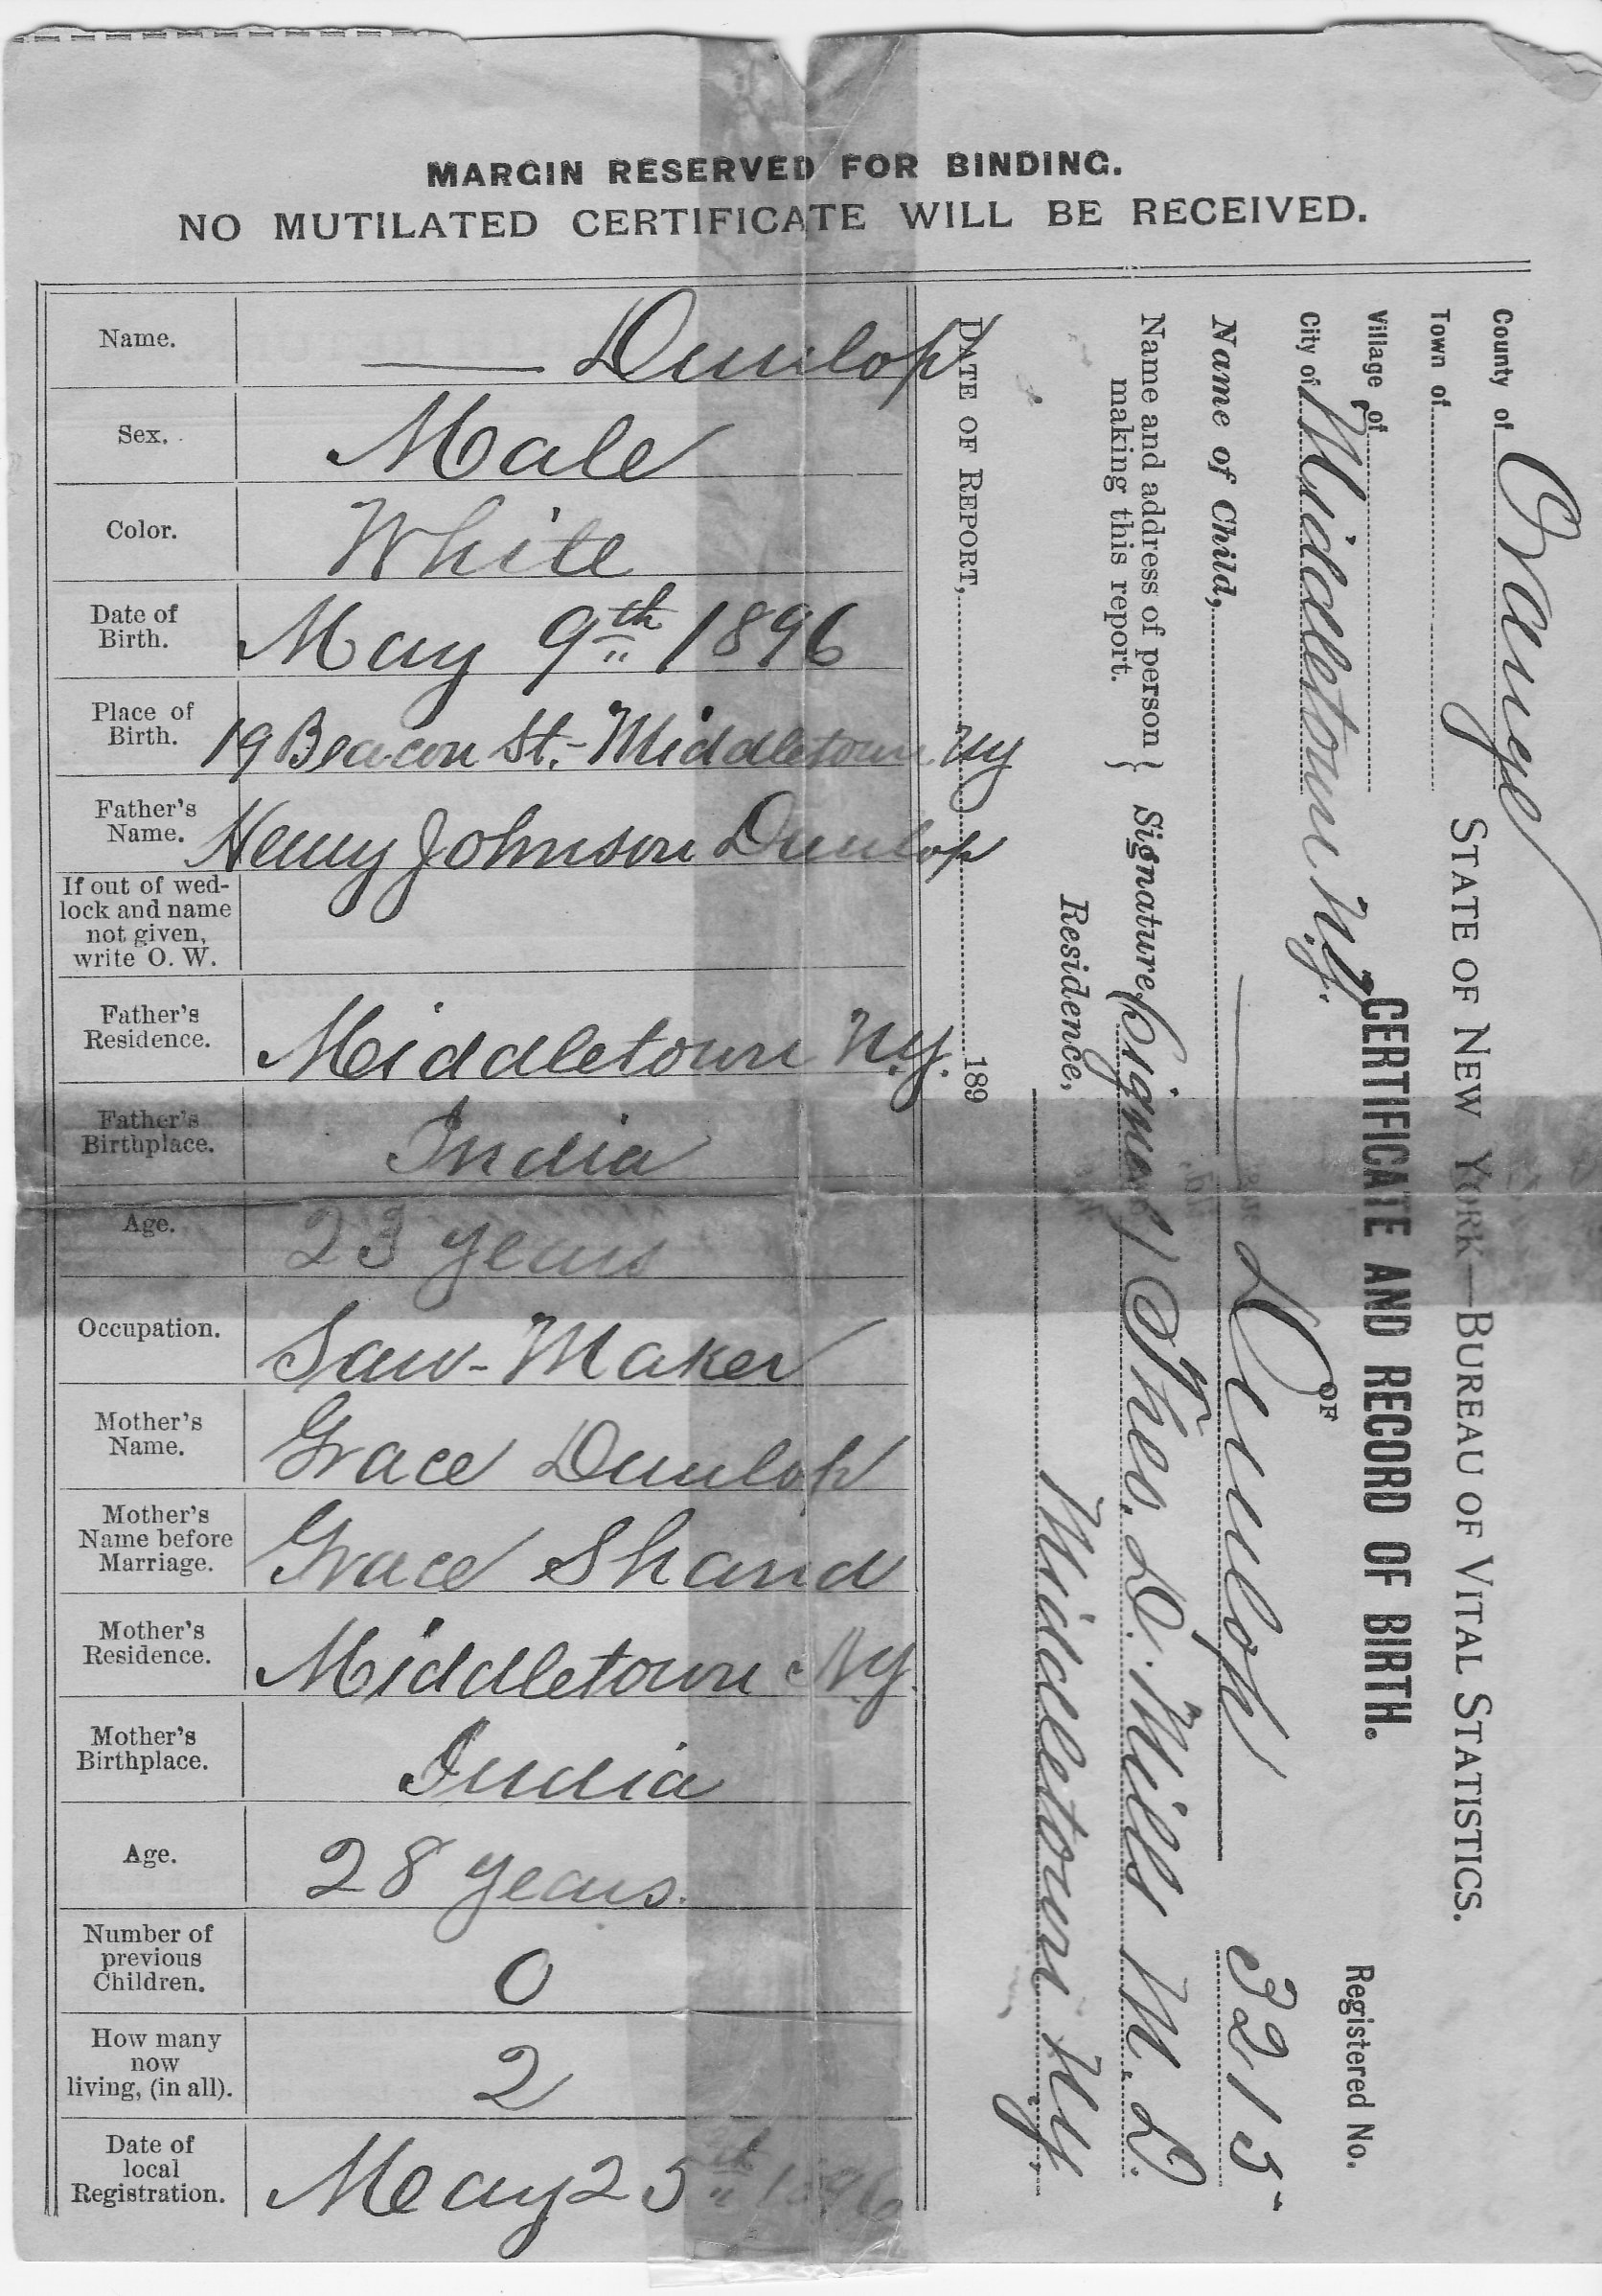 MARGIN RESERVED FOR BINDING.
NO MUTILATED CERTIFICATE WILL BE RECEIVED.
Name. —— Dunlop
Sex. Male
Color. White
Date of Birth. May 9th 1896
Place of Birth. 19 Beacon St.- Middletown NY
Father's Name. Henry Johnson Dunlop
If out of wed-
lock and name
not given,
write O. W.
Father's Residence. Middletown N.Y.
Father's Birthplace. India
Age. 23 years
Occupation. Saw-Maker
Mother's Name. Grace Dunlop
Mother's Name before Marriage. Grace Shand
Mother's Residence. Middletown N.Y.
Mother's Birthplace. India
Age. 28 years.
Number of previous Children. 0
How many now living, (in all). 2
Date of local Registration. May 25th 1896
County of Orange
Town of
Village of
City of Middletown N.Y.
STATE OF NEW YORK—BUREAU OF VITAL STATISTICS.
CERTIFICATE AND RECORD OF BIRTH.
OF
Registered No.
Name of Child, —— Dunlop 3215
Name and address of person making this report. } Signature, (Signed) Theo. D. Mills M.D.
Residence, Middletown NY.
DATE OF REPORT, 189